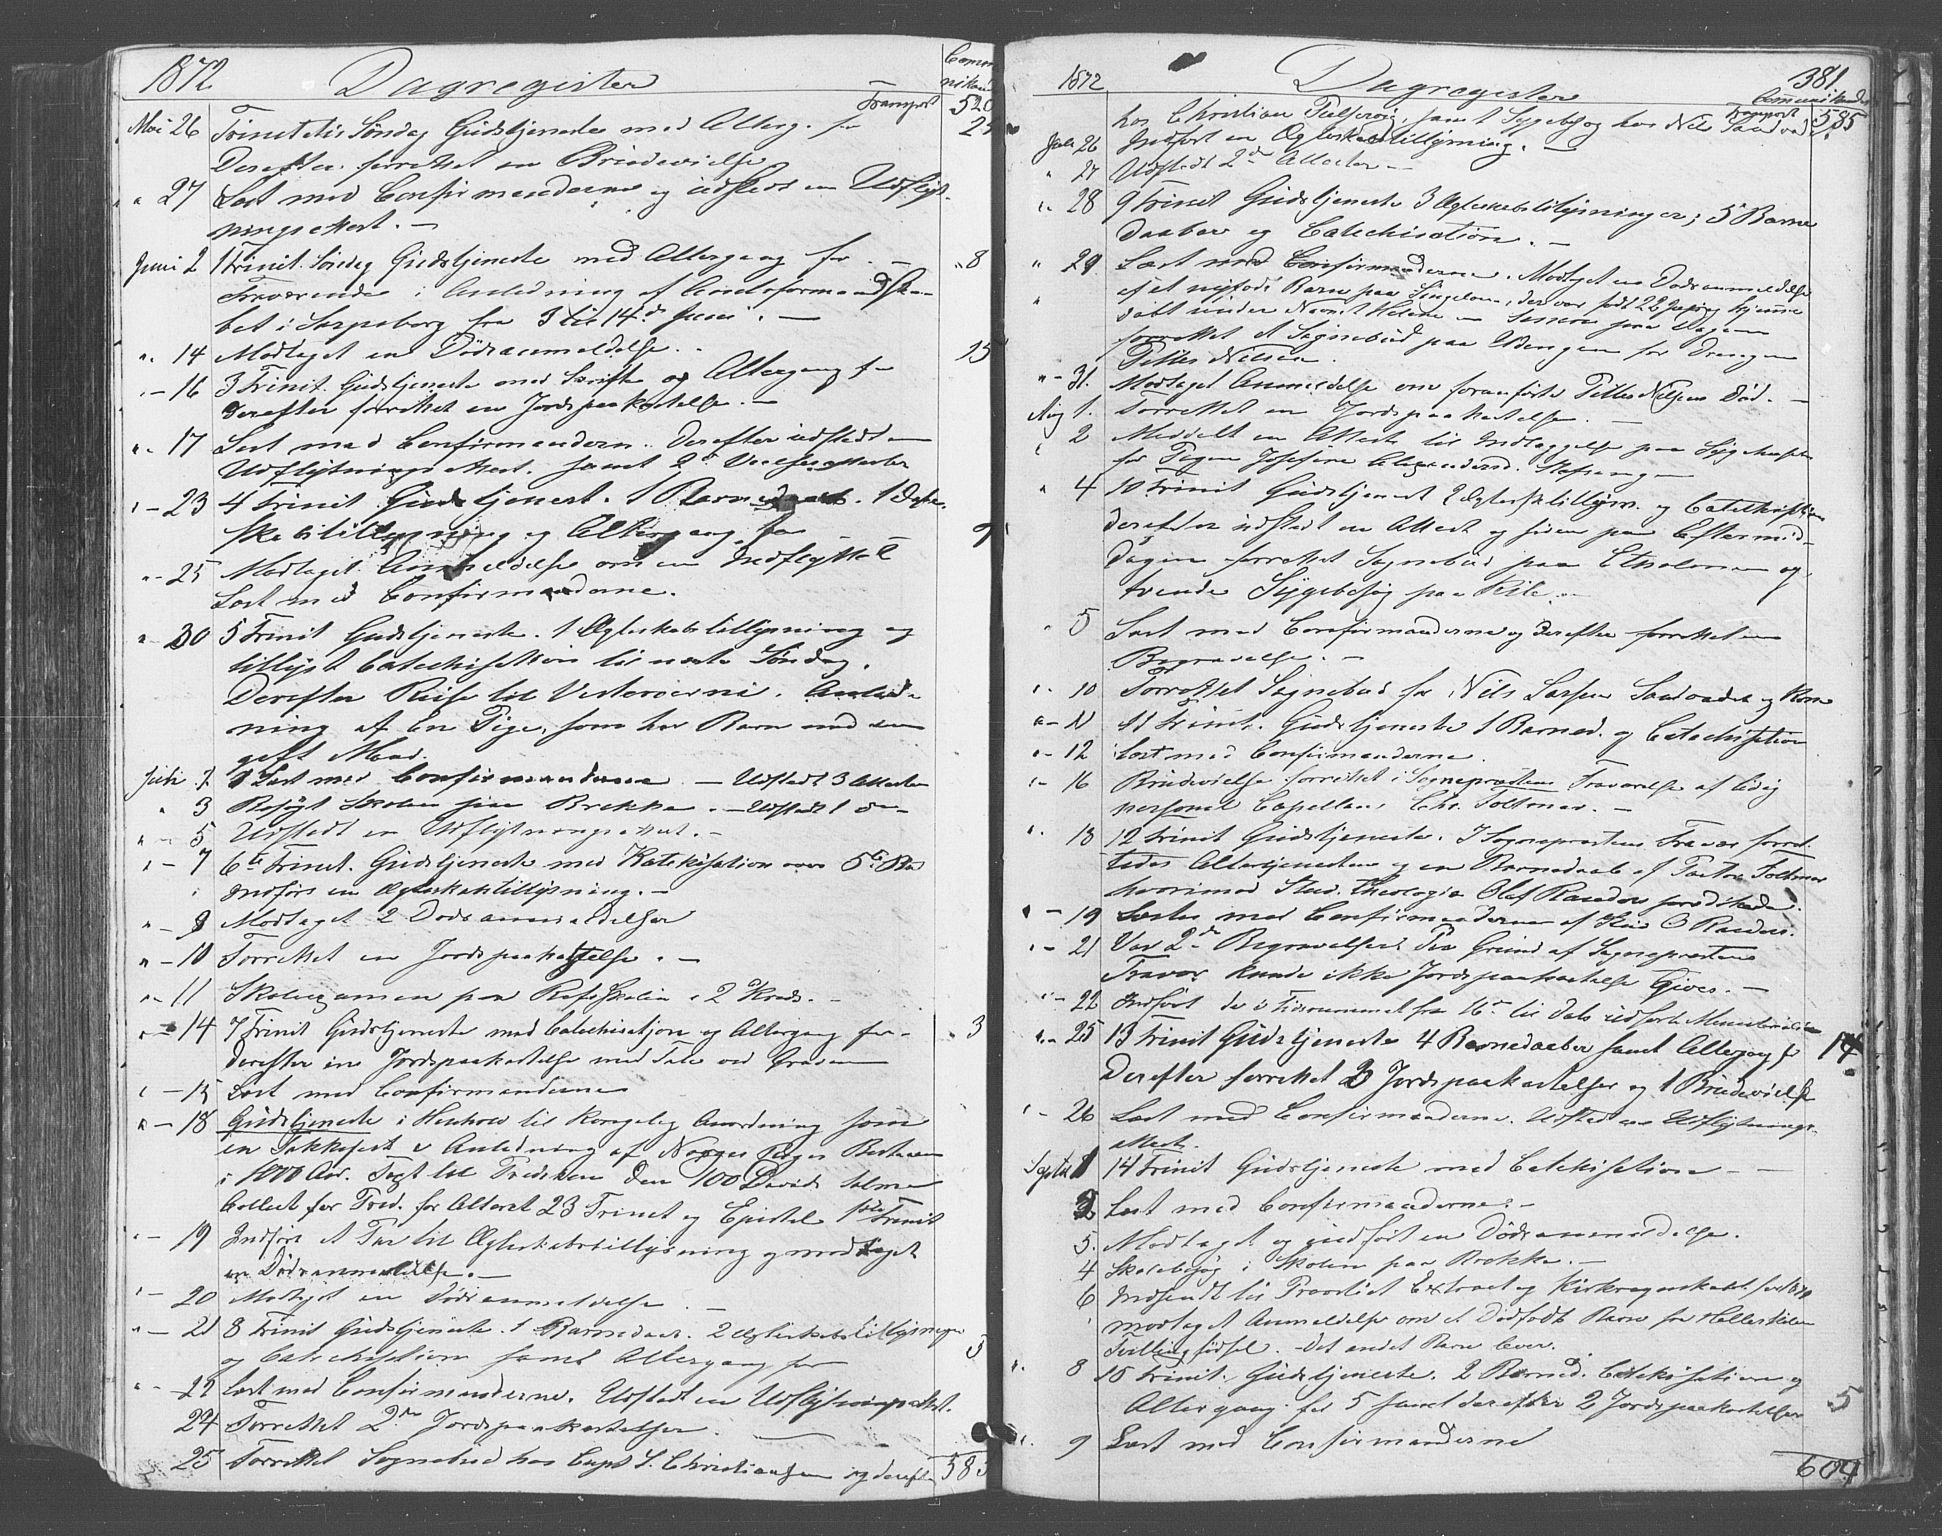 1872
Dagregister
Transport
Mai 26 Trinitatis Søndag Gudstjeneste med Alterg. for
Derefter forrettet en Brudevielse
" 27 Læst med Confirmanderne og udskrev en Udflyt-
ningsattest. –
Juni 2 1 Trinit. Søndag Gudstjeneste med Altergang for – 8
Fraværende i Anledning af
bet i Sarpsborg fra 3 til 14de Juni. –
" 14 Modtaget en Dødsanmeldelse. 15
" – 16 3 Trinit. Gudstjeneste med Skrifte og Altergang f –
Derefter forrettet en Jordspaakastelse. –
" 17 Læst med Confirmandern. Derefter udstedt en
Udflytningsattest. samt 2de
" – 23 4 Trinit Gudstjenest. 1 Barnedaab. 1 Ægte-
skabstillysning og Altergang for – 9
" 25 Modtaget Anmeldelse om en Indflyttet
Læst med Confirmanderne.
" 30 5 Trinit Gudstjeneste. 1 Ægteskabstillysning og
tillyst Catechisation til næste Søndag.
Derefter Reise til Anled-
ning af en Pige, som har Barn med en
gift Mand.
Juli 1 Læst med Confirmanderne – Udstedt 3 Attester
" 3 Besøgt Skolen paa Brekke. – Udstedt 1 do –
" – 5 Udstedt en Udflytningsattest. –
" – 7 6te Trinit. Gudstjeneste med Katekisation over 5te
Indført en Ægteskabstillysning. –
" – 9 Modtaget 2 Dødsanmeldelser
" – 10 Forrettet en Jordspaakastelse. –
" – 11 Skoleexamen paa i 2 Kreds. –
" – 14 7 Trinit Gudstjeneste med Catechisation og Altergang for – 3
derefter en Jordspaakastelse med Tale ved Graven
" – 15 Læst med Confirmanderne
" – 18 Gudstjeneste i Henhold til kongelig Anordning som
en Takkefest i Anledning af Norges Riges Bestaaen
i 1000 Aar. Text til Prædiken den 100 Davids Salme
Collect for Fred. for Alteret 23 Trinit og Epistel 1ste Trinit
" – 19 Indført et Par til Ægteskabstillysning og modtaget
en Dødsanmeldelse. –
" – 20 Modtaget en Dødsanmeldelse. –
" – 21 8 Trinit Gudstjeneste. 1 Barnedaab. 2 Ægteskabstillysninger
og Catechisation samt Altergang for 3
" – 22 Læst med Confirmanderne. Udstedt en Udflytningsattest.
24 Forrettet 2de Jordspaakastelser.
25 Forrettet Sognebud hos Capt S. Christiansen og derefter 585
1872
Dagregister
381.
Communikanter
Transport 585
hos Christian samt Sygebesøg hos Nils Sandvad
Juli 26 Indført en Ægteskabstillysning. –
" 27 Udstedt 2de Attester –
" 28 9 Trinit Gudstjeneste 3 Ægteskabstillysninger, 5 Barne
daaber og Catechisation. –
" 29 Læst med Confirmanderne. Modtaget en Dødsanmeldelse
af et nyfødt Barn paa Singeløen, der var født 22 og hjemme
døbt under Navnet Helene – Samme Dagen
forrettet et Sognebud paa for Drengen
Petter Nilsen.
" – 31. Modtaget Anmeldelse om foranførte Petter Nilsens Død. –
Aug 1. Forrettet en Jordspaakastelse. –
2 Meddelt en Attest til Indlæggelse paa
for Pigen Josefine
" 4 10 Trinit Gudstjenest 2 Ægtesk.tillysn. og Catechisation
derefter udstedt en Attest og siden paa Eftermid-
dagen forrettet Sognebud paa og
tvende Sygebesøg paa
" 5 Læst med Confirmanderne og derefter forrettet en
Begravelse. –
" – 10 Forrettet Sognebud for Nils Larsen Sandvad og Kone
" – 11 11 Trinit. Gudstjeneste 1 Barned. og Catechisation
" – 12 Læst med Confirmanderne.
" – 16 Brudevielse forrettet i Sognepræstens Fraværelse af
personel Capellan, Chr. Foltmar. –
" 18 12 Trinit Gudstjeneste. I Sognepræstens Fravær forret-
tedes Altertjenesten og en Barnedaab af Pastor Foltmar
hvorimod Stud. theologiæ Olaf prædikede.
" – 19 Læstes med Confirmanderne af
" – 21 Var 2de Begravelser. Paa Grund af Sognepræstens
Fravær kunde ikke Jordspaakastelse gives. –
" – 22 Indført de i Tidsrummet fra 16de til Dato udførte Ministerialia
" – 25 13 Trinit Gudstjeneste 4 Barnedaaber samt Altergang f 14
Derefter forrettet 2 Jordspaakastelser og 1 Brudevielse
" – 26 Læst med Confirmanderne. Udstedt en Udflytnings-
attest.
Septbr 1 14 Trinit Gudstjeneste med Catekisation –
2 Læst med Confirmanderne. –
5. Modtaget og indført en Dødsanmeldelse.
4 Skolebesøg i Skolen paa Brekke. –
6 Indsendt til Provstiet Extract og
modtaget Anmeldelse om et Dødfødt Barn for
Tvillingfødsel. – Det andet Barn lever.
" 8 15 Trinit. Gudstjeneste. 2 Barned. Catekisation og
Altergang for 5 samt derefter 2 Jordspaakastelser 5
" 9 Læst med Confirmanderne
604